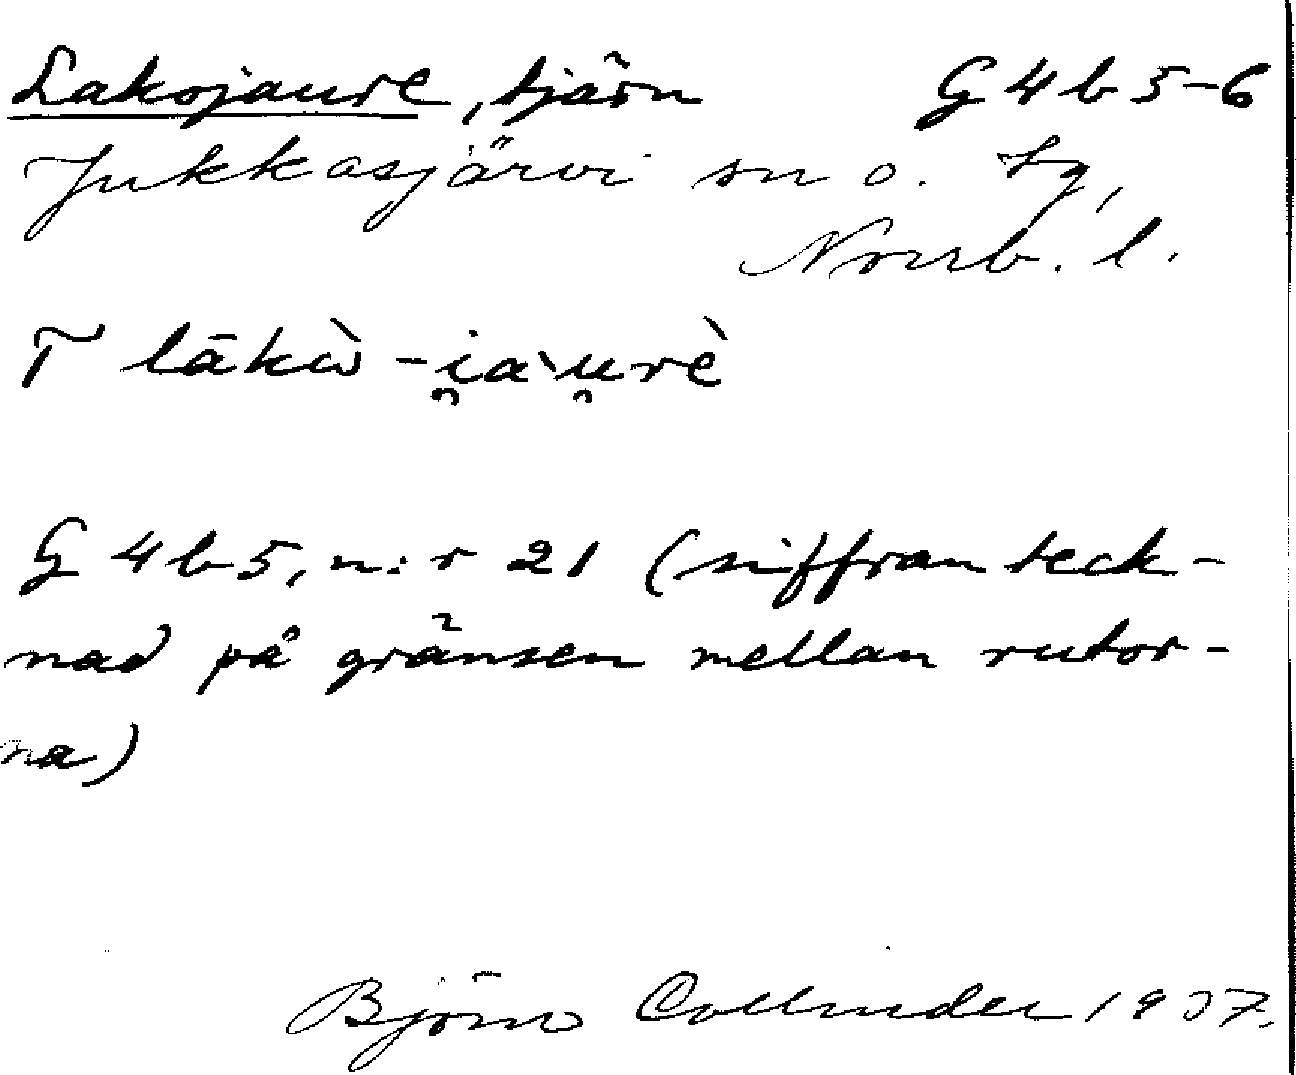 Lakojaure, tjärn G 4 b 5-6
Jukkasjärvi sn o. tg,
Norrb. l.
T lākὼ-i̯a`u̯rè
G 4 b 5, n:r 21 (siffran teck-
nad på gränsen mellan rutor-
na)
Björn Collinder 1937.